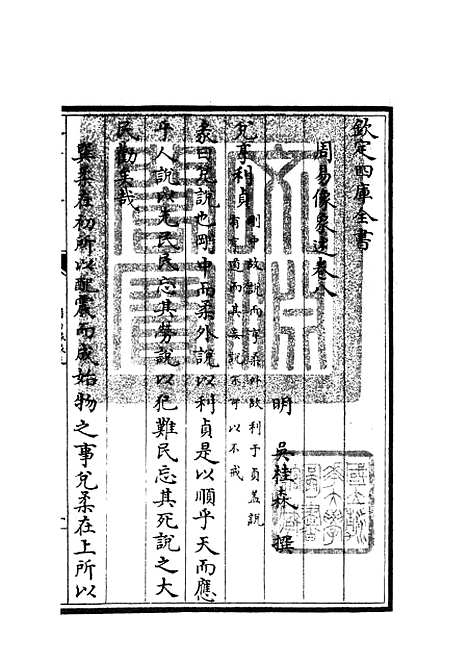 欽定四庫全書
周易像象述卷八
明 吳桂森 撰
兌亨利貞
剛中故說而亨柔外故利于貞蓋說
有有道而其妄說不可以不戒
彖曰兌說也剛中而柔外說以利貞是以順乎天而應
乎人說以先民民忘其勞說以犯難民忘其死說之大
民勸矣哉
巽柔在初所以配震而成始物之事兌柔在上所以